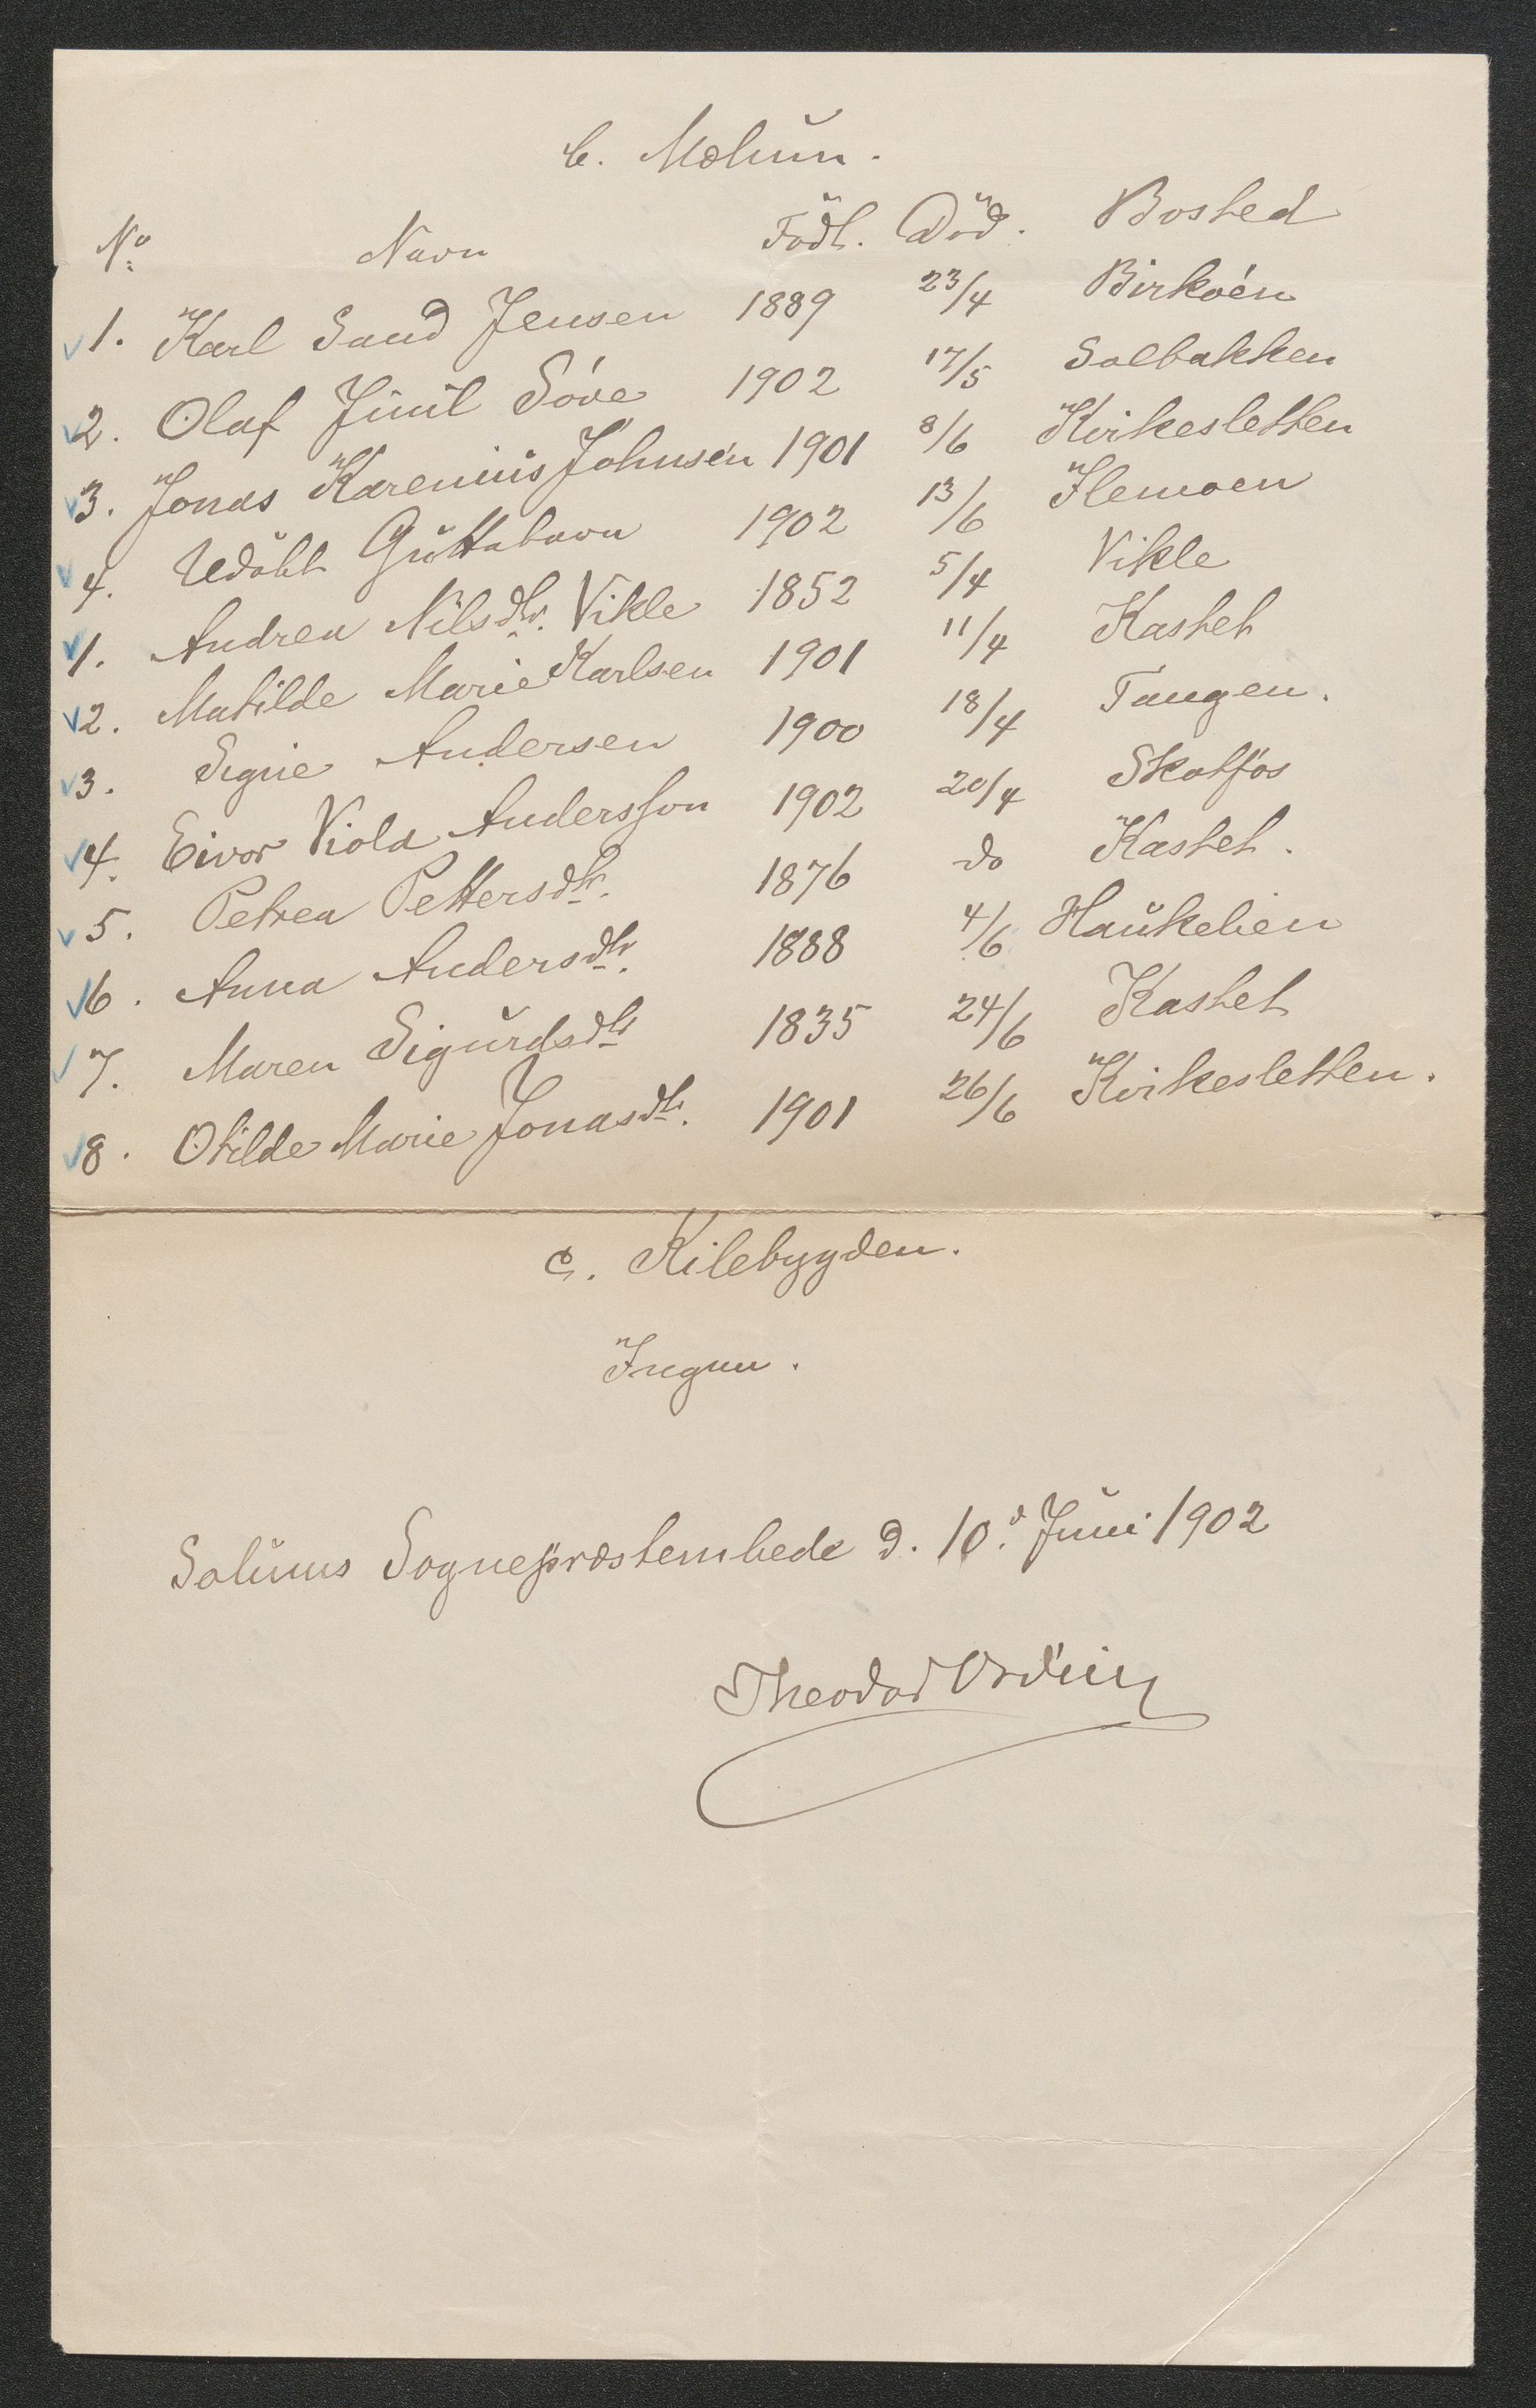 b. Mælum.
No Navn Födt. Död. Bosted
1. Karl Sand Jensen 1889 23/4 Birkoén
2. Olaf Juul Sóve 1902 17/5 Solbakken
3. Jonas Karenius Johnsen 1901 8/6 Kvikesletten
4. Udöbt Guttebarn 1902 13/6 Flemoen
1. Andrea Nilsdtr. Vikle 1852 5/4 Vikle
2. Matilde Marie Karlsen 1901 11/4 Kastet
3. Signe Andersen 1900 18/4 Tangen.
4. Eivor Viola Andersson 1902 20/4 Skotfos
5. Petrea Pettersdtr. 1876 do Kastet.
6. Anna Andersdtr. 1888 4/6 Haukelien
7. Maren Sigurdsdtr 1835 24/6 Kastet
8. Otilde Marie Jonasdtr. 1901 26/6 Kvikesletten.
c. Kilebygden.
Ingen.
Solums Sognepræstembede d. 10.d Juni 1902
Theodor Ording